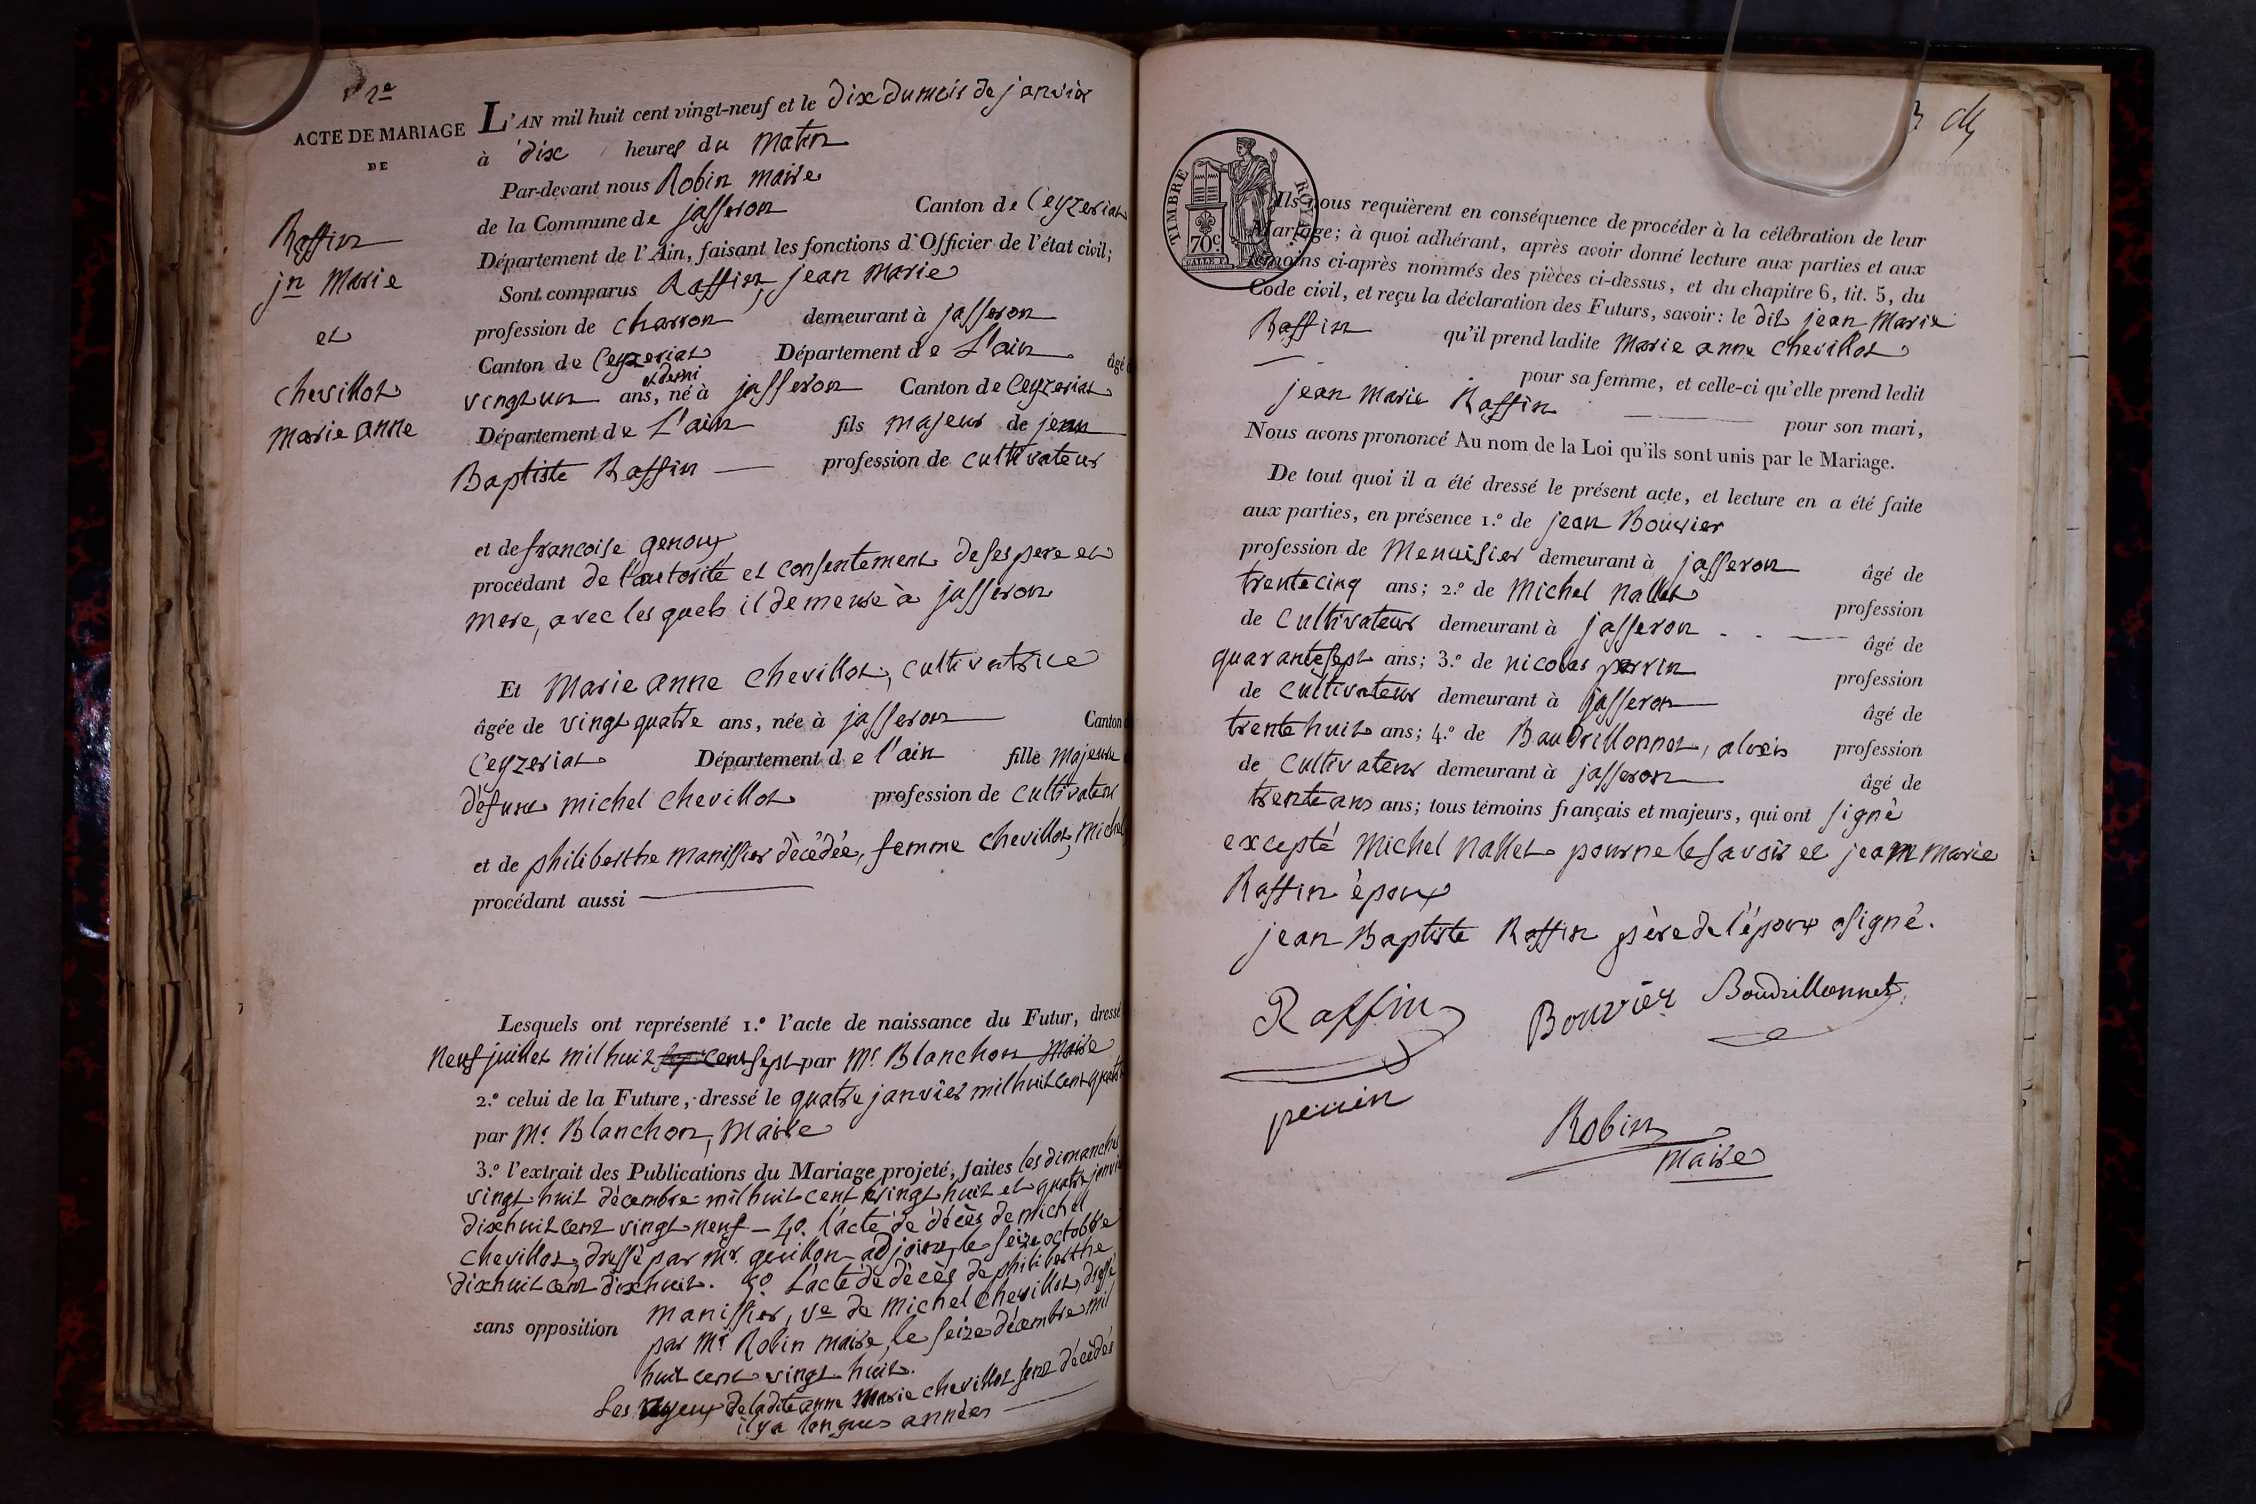 1re
ACTE DE MARIAGE
DE
Raffin
jn Marie
et
chevillot
marie anne
L'AN mil huit cent vingt-neuf et le dix du mois de janvier
à dix heures du matin
Par-devant nous Robin maire
de la Commune de jasseron Canton de Ceyzeriat
Département de l'Ain, faisant les fonctions d'Officier de l'état civil;
Sont comparus Raffin, jean marie
profession de charron demeurant à jasseron
Canton de Ceyzeriat Département de L'ain âgé
et demi
vingt un ans, né à jasseron Canton de Ceyzeriat
Département de L'ain fils majeur de jean
Baptiste Raffin profession de cultivateur
et de francoise genoux
procédant de l'autorité et consentement de ses pere et
mere, avec les quels il demeure à jasseron
Et Marie anne chevillot, cultivatrice
âgée de vingt quatre ans, née à jasseron Canton
Ceyzeriat Département de l'ain fille majeure
défunt michel chevillot profession de cultivateur
et de philiberthe manissier décédée, femme chevillot, michel
procédant aussi
Lesquels ont représenté 1.º l'acte de naissance du Futur, dressé
neuf juillet mil huit cent sept par Mr. Blanchon maire
2.º celui de la Future, dressé le quatre janvier mil huit cent quatre
par Mr. Blanchon, maire
3.º l'extrait des Publications du Mariage projeté, faites les dimanches
vingt huit décembre mil huit cent vingt huit et quatre janvier
dixhuit cent vingt neuf - 4º. l'acte de décès de michel
chevillot, dressé par Mr. guillon adjoint, le seize octobre
dixhuit cent dixhuit. 5º. L'acte de décès de philiberthe
manissier, ve de michel chevillot, dressé
sans opposition par Mr Robin maire, le seize décembre mil
huit cent vingt huit.
Les ayeux de ladite anne marie chevillot sont décédés
il y a longues années
TIMBRE ROYAL
70 c
Ils nous requièrent en conséquence de procéder à la célébration de leur
Mariage; à quoi adhérant, après avoir donné lecture aux parties et aux
témoins ci-après nommés des pièces ci-dessus, et du chapitre 6, tit. 5, du
Code civil, et reçu la déclaration des Futurs, savoir: le dit jean Marie
Raffin qu'il prend ladite marie anne chevillot
pour sa femme, et celle-ci qu'elle prend ledit
jean marie Raffin pour son mari,
Nous avons prononcé Au nom de la Loi qu'ils sont unis par le Mariage.
De tout quoi il a été dressé le présent acte, et lecture en a été faite
aux parties, en présence 1.º de jean Bouvier
profession de Menuisier demeurant à jasseron âgé de
trente cinq ans; 2.º de Michel nallet profession
de Cultivateur demeurant à jasseron âgé de
quarante sept ans; 3.º de nicolas perrin profession
de cultivateur demeurant à jasseron âgé de
trente huit ans; 4.º de Baudrillonnet, alexis profession
de cultivateur demeurant à jasseron âgé de
trente ans ans; tous témoins français et majeurs, qui ont signé
excepté Michel nallet pour ne le savoir et jean marie
Raffin époux
jean Baptiste Raffin père de l'époux a signé.
Raffin Bouvier Boudrillonnet
perrin
Robin
maire